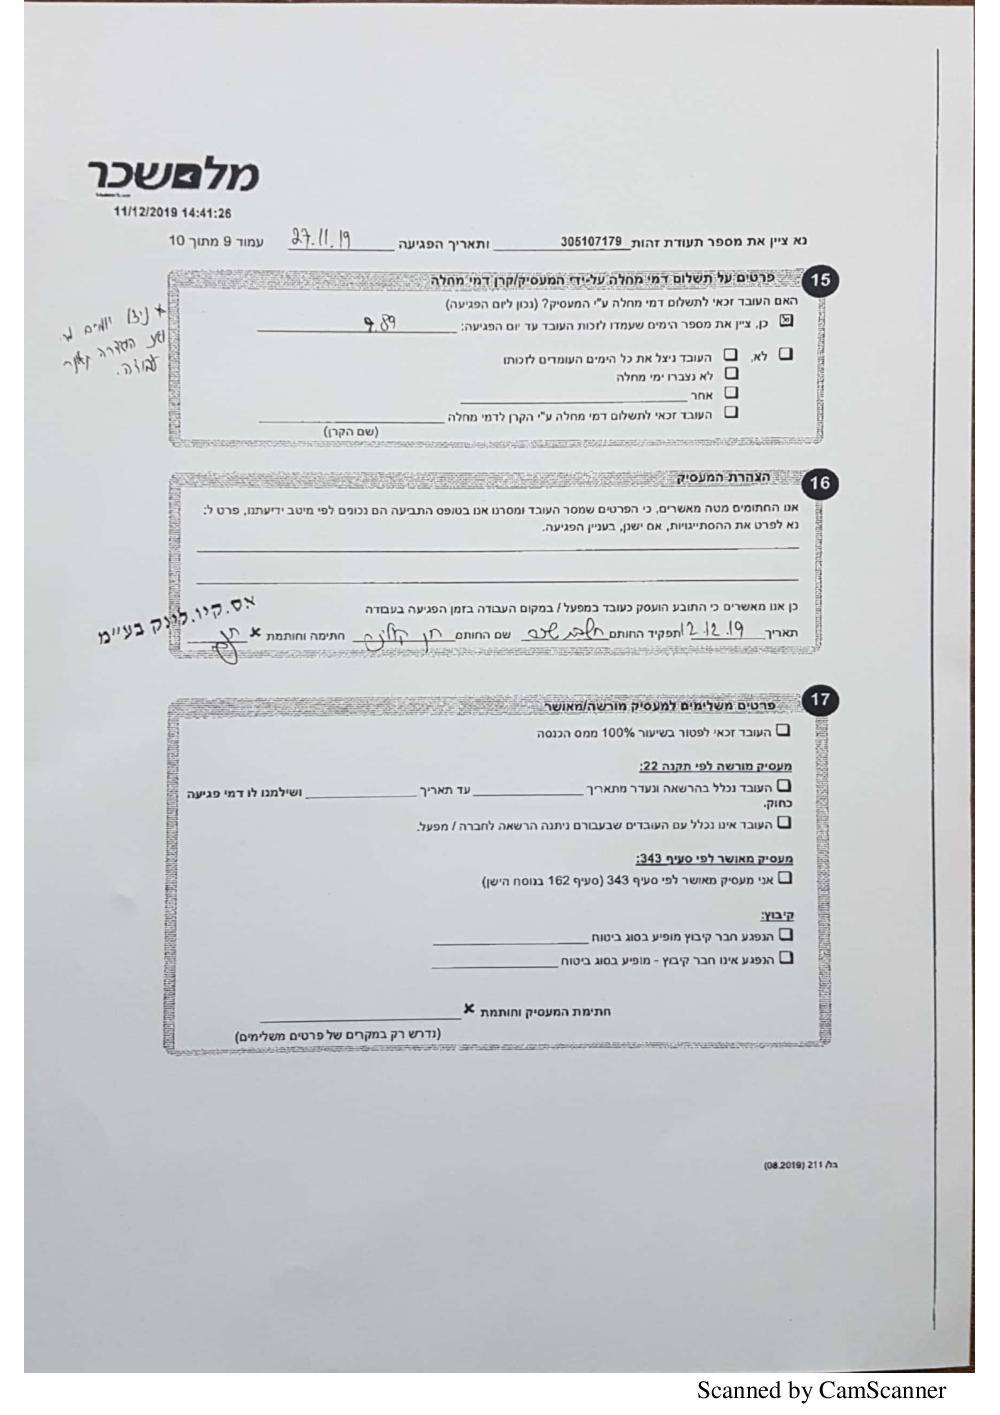 מלמשכר
11/12/2019 14:41:26
נא ציין את מספר תעודת זהות 305107179 ותאריך הפגיעה 27.11.19 עמוד 9 מתוך 10
15 פרטים על תשלום דמי מחלה על-ידי המעסיק/קרן דמי מחלה
האם העובד זכאי לתשלום דמי מחלה ע"י המעסיק? (נכון ליום הפגיעה)
כן, ציין את מספר הימים שעמדו לזכות העובד עד יום הפגיעה: 9.89
לא, העובד ניצל את כל הימים העומדים לזכותו
לא נצברו ימי מחלה
אחר
העובד זכאי לתשלום דמי מחלה ע"י הקרן לדמי מחלה
(שם הקרן)
העדרה
עבודה.
16 הצהרת המעסיק
אנו החתומים מטה מאשרים, כי הפרטים שמסר העובד ומסרנו אנו בטופס התביעה הם נכונים לפי מיטב ידיעתנו, פרט ל:
נא לפרט את ההסתייגויות, אם ישנן, בעניין הפגיעה.
כן אנו מאשרים כי התובע הועסק כעובד במפעל / במקום העבודה בזמן הפגיעה בעבודה
תאריך 12.12.19 תפקיד החותם חשבת שכר שם החותם חן חתימה וחותמת x חן
אס.קיו.לינק בע"מ
17 פרטים משלימים למעסיק מורשה/מאושר
העובד זכאי לפטור בשיעור 100% ממס הכנסה
מעסיק מורשה לפי תקנה 22:
העובד נכלל בהרשאה ונעדר מתאריך עד תאריך ושילמנו לו דמי פגיעה
כחוק.
העובד אינו נכלל עם העובדים שבעבורם ניתנה הרשאה לחברה / מפעל.
מעסיק מאושר לפי סעיף 343:
אני מעסיק מאושר לפי סעיף 343 (סעיף 162 בנוסח הישן)
קיבוץ:
הנפגע חבר קיבוץ מופיע בסוג ביטוח
הנפגע אינו חבר קיבוץ - מופיע בסוג ביטוח
חתימת המעסיק וחותמת x
(נדרש רק במקרים של פרטים משלימים)
בל/ 211 (08.2019)
Scanned by CamScanner